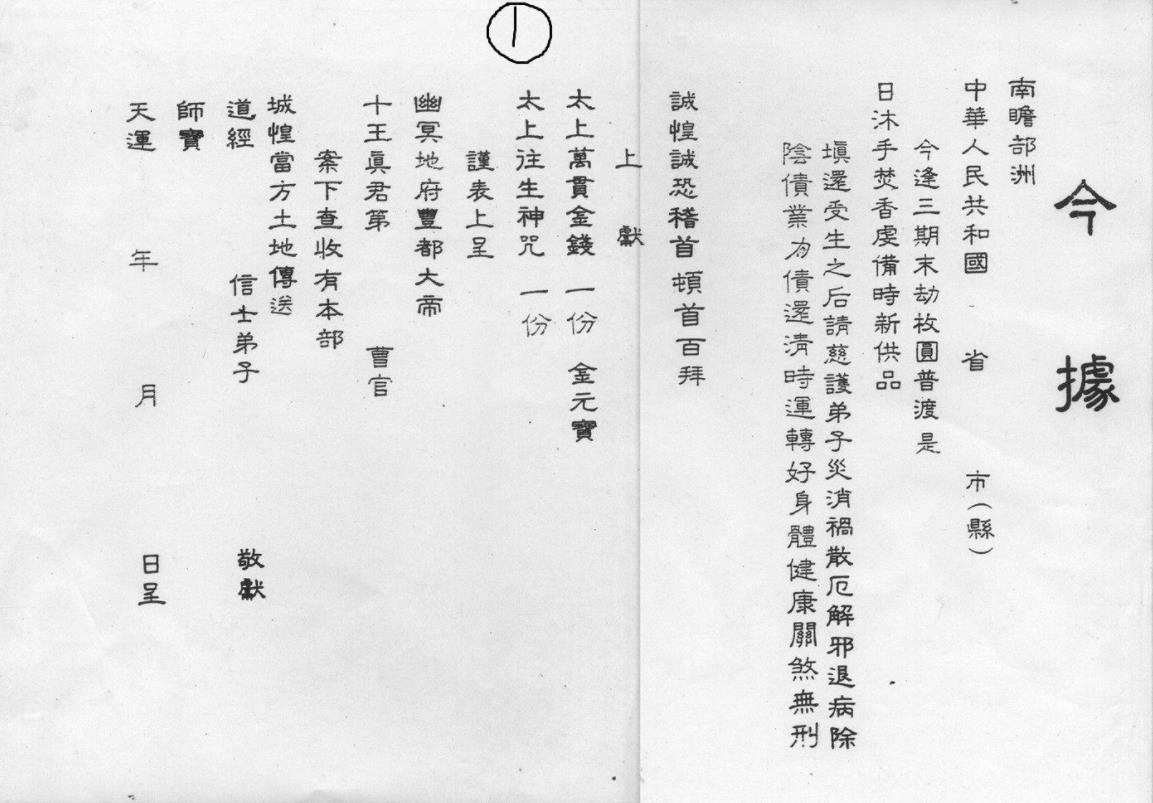 ①
今據
南瞻部洲
中華人民共和國 省 市(縣)
今逢三期末劫枚圓普渡是
日沐手焚香虔備時新供品
塡還受生之后請慈護弟子災消禍散厄解邪退病除
陰債業为債還清時運轉好身體健康關煞無刑
誠惶誠恐稽首頓首百拜
上獻
太上萬貫金錢一份 金元寶
太上往生神咒一份
謹表上呈
幽冥地府豐都大帝
十王眞君第 曹官
案下查收有本部
城惶當方土地傳送
道經 信士弟子 敬獻
師寶
天運 年 月 日呈